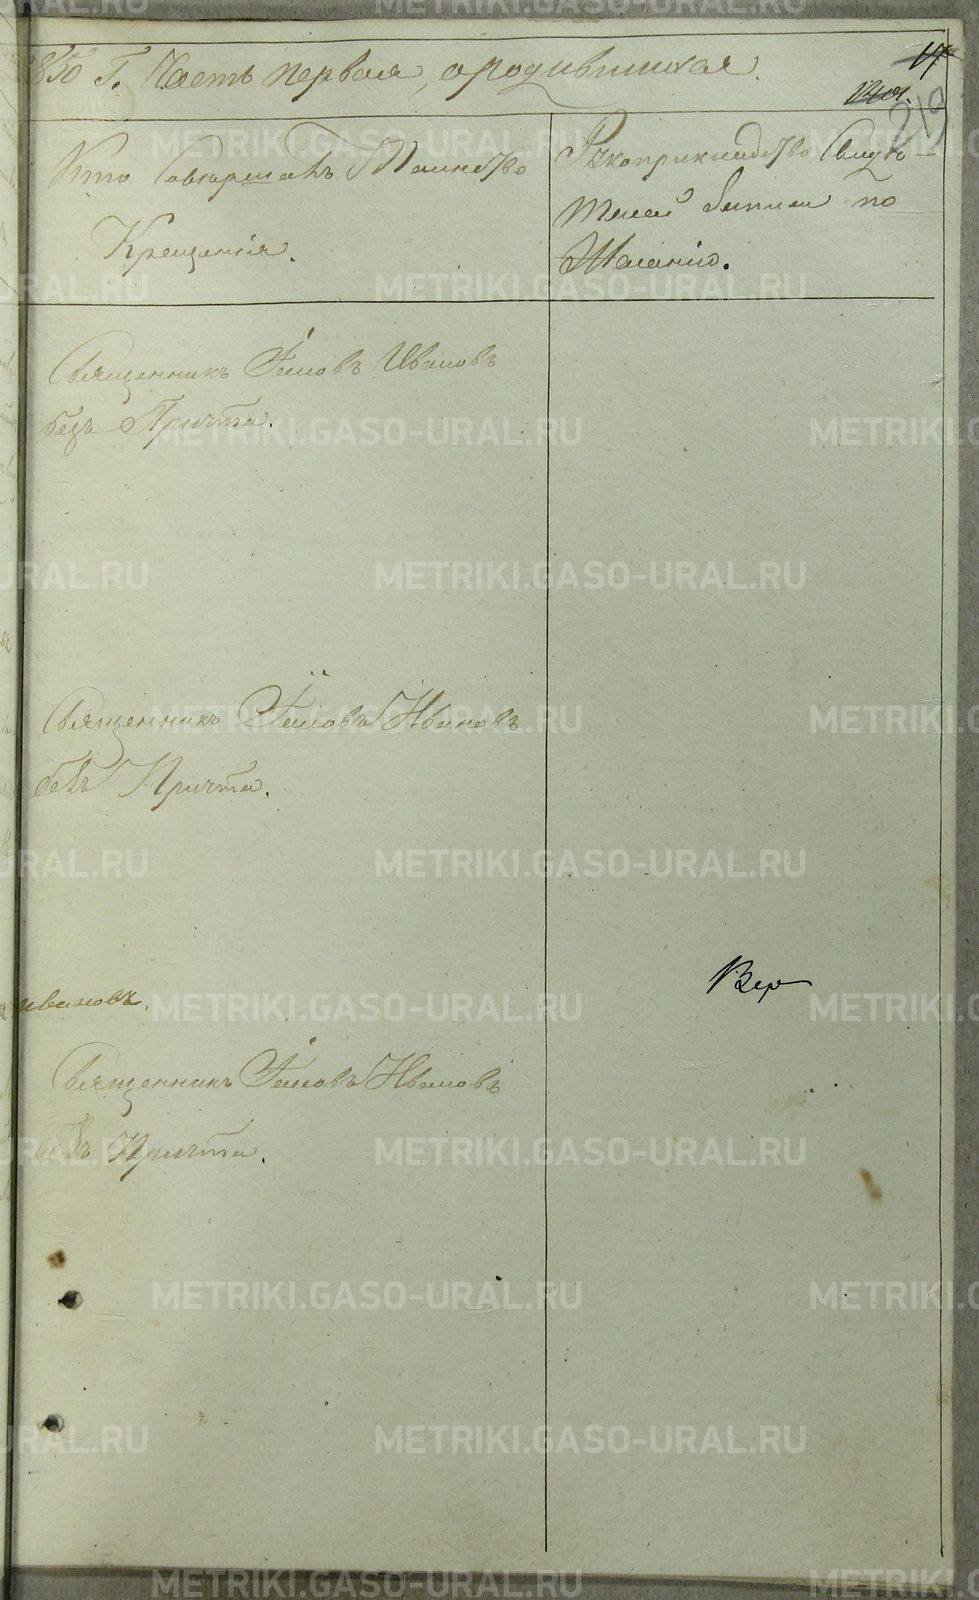 1850 г. Часть первая, ородившихся.
17
219
Кто Совершалъ Таинство
Крещенія.
Рукоприкладство Свидѣ-
телей записи по
Желанію.
Священникъ Іаковъ Ивановъ
безъ Причта.
Священникъ Іаковъ Ивановъ
безъ Причта.
Ивановъ.
Вер
Священникъ Іаковъ Ивановъ
безъ Причта.
METRIKI.GASO-URAL.RU